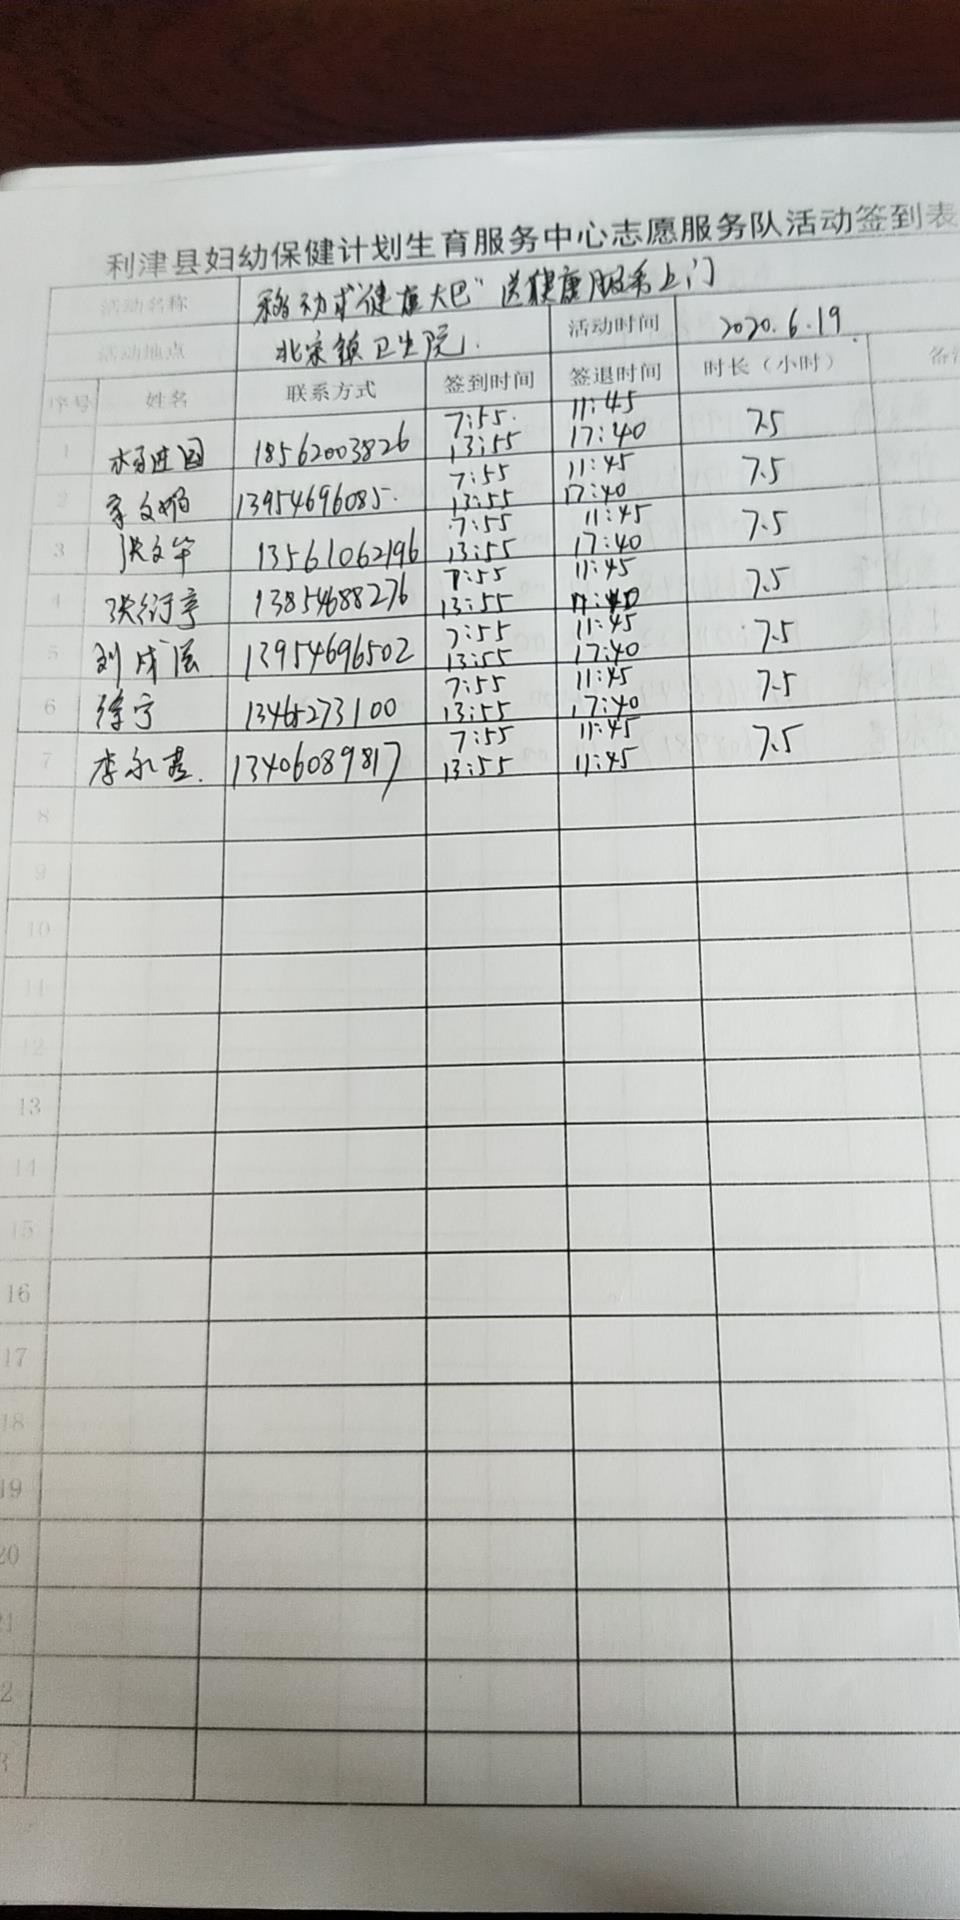 利津县妇幼保健计划生育服务中心志愿服务队活动签到表
活动名称 移动式"健康大巴"送健康服务上门
活动地点 北宋镇卫生院. 活动时间 2020.6.19.
序号 姓名 联系方式 签到时间 签退时间 时长（小时） 备
7:55. 11:45
1 18562003826 13:55 17:40 7.5
7:55 11:45
2 13954696085. 13:55 17:40 7.5
7:55 11:45
3 洪文华 13561062196 13:55 17:40 7.5
7:55 11:45
4 13854688276 13:55 17:40 7.5
7:55 11:45
5 13954696502 13:55 17:40 7.5
7:55 11:45
6 徐宁 13465273100 13:55 17:40 7.5
7:55 11:45
7 李永 13406089817 13:55 11:45 7.5
8
9
10
11
12
13
14
15
16
17
18
19
20